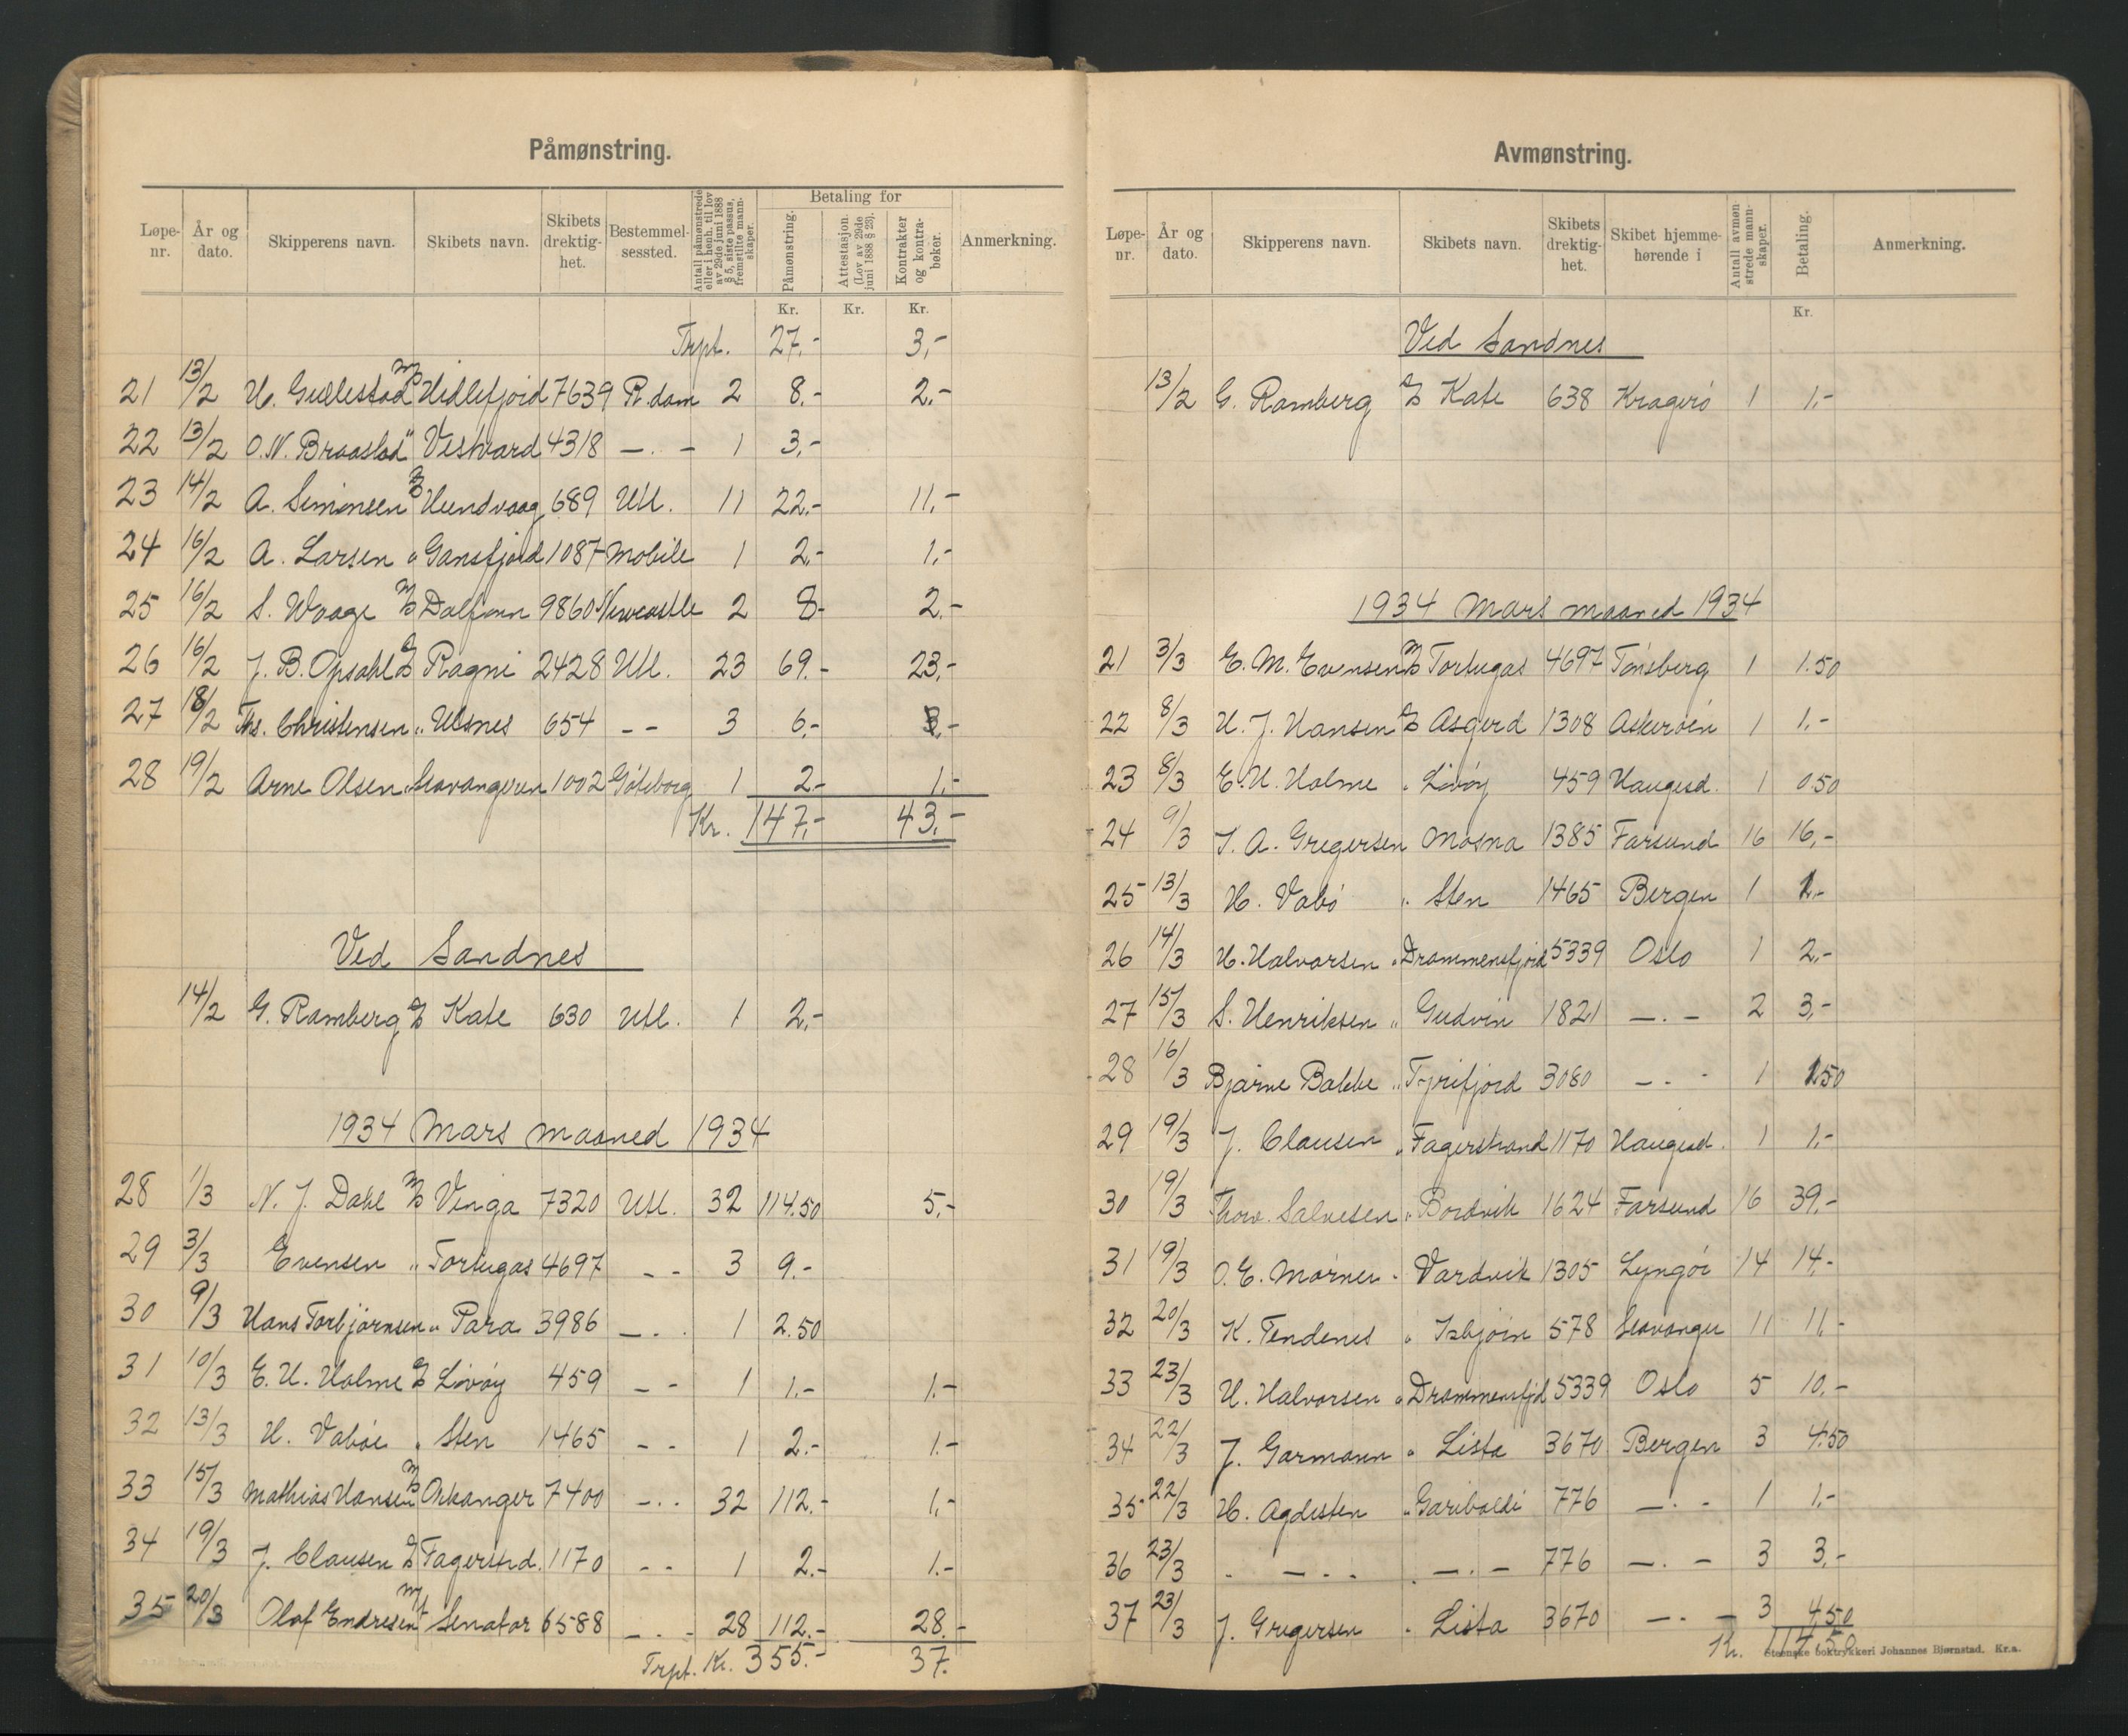 Påmønstring.
Løpe-nr. | År og dato. | Skipperens navn. | Skibets navn. | Skibets drektig-het. | Bestemmel-sessted. | Antall påmønstrede eller i henh. til lov av 29de juni 1888 § 5, siste passus, fremstilte mann-skaper. | Betaling for | Påmønstring. | Attestasjon. (Lov av 29de juni 1888 § 23). | Kontrakter og kontra-bøker. | Anmerkning.
Kr. Kr. Kr.
Trpt. 27.- 3,-
21 13/2 H. Gullestad M/S Hidlefjord 7639 R.dam 2 8.- 2.-
22 13/2 O.N. Braastad " Vestvard 4318 — . — 1 3,-
23 14/2 A. Simonsen D/S Hundvaag 689 Utl. 11 22.- 11,-
24 16/2 A. Larsen " Gansfjord 1087 Mobile 1 2,- 1,-
25 16/2 S. Waage M/S Dalfonn 9860 Newcastle 2 8- 2.-
26 16/2 J. B. Opsahl D/S Ragni 2428 Utl. 23 69.- 23,-
27 18/2 Ths. Christensen " Ulsnes 654 - - 3 6,- 3,-
28 19/2 Arne Olsen " Stavangeren 1002 Göteborg 1 2- 1.-
Kr. 147,- 43,-
Ved Sandnes
14/2 G. Ramberg D/S Kate 630 Utl. 1 2,-
1934 Mars maaned 1934
28 1/3 N. J. Dahl M/S Vinga 7320 Utl. 32 114.50 5,-
29 3/3 Evensen " Tortugas 4697 - - 3 9.-
30 9/3 Hans Torbjørnsen " Para 3986 — . . 1 2.50
31 10/3 E. H. Holme D/S Livöy 459 - - 1 1.- 1.-
32 13/3 H. Vabøe " Sten 1465 - - 1 2.- 1.-
33 15/3 Mathias Hansen M/S Orkanger 7400 - . . 32 112.- 1,-
34 19/3 J. Clausen D/S Fagerstrd. 1170 - - 1 2.- 1.-
35 20/3 Olaf Endresen M/T Senator 6588 — . - 28 112.- 28.-
Trpt. Kr. 355.- 37.
Avmønstring.
Løpe-nr. | År og dato. | Skipperens navn. | Skibets navn. | Skibets drektig-het. | Skibet hjemme-hørende i | Antall avmøn strede mann-skaper. | Betaling. | Anmerkning.
Kr.
Ved Sandnes
13/2 G. Ramberg D/S Kate 638 Kragerö 1 1.-
1934 Mars maaned 1934
21 3/3 E. M. Evensen M/S Tortugas 4697 Tönsberg 1 1.50
22 8/3 H. J. Hansen D/S Asgerd 1308 Askeröen 1 1.-
23 8/3 E. H. Holme " Livöy 459 Haugesd. 1 0.50
24 9/3 J. A. Gregersen Mosna 1385 Farsund 16 16,-
25 13/3 H. Vabö " Sten 1465 Bergen 1 1.-
26 14/3 H. Halvorsen " Drammensfjord 5339 Oslo 1 2,-
27 15/3 S. Henriksen " Gudvin 1821 — . — 2 3,-
28 16/3 Bjarne Bakke " Tyrifjord 3080 — . - 1 1.50
29 19/3 J. Clausen " Fagerstrand 1170 Haugesd. 1 1.-
30 19/3 Thorv. Salvesen " Bordvik 1624 Farsund 16 39,-
31 19/3 O. E. Mörner " Vardvik 1305 Lyngör 14 14,-
32 20/3 K. Tendenes " Isbjörn 578 Stavanger 11 11,-
33 23/3 H. Halvorsen " Drammensfjd 5339 Oslo 5 10,-
34 22/3 J. Garmann " Lista 3670 Bergen 3 4.50
35 22/3 H. Agdesten " Garibaldi 776 — . - 1 1,-
36 23/3 - — . . . — . — 776 — . — 3 3,-
37 23/3 J. Gregersen " Lista 3670 — . — 3 4.50
Kr. 114.50
Steenske boktrykkeri Johannes Bjørnstad. Kr.a.